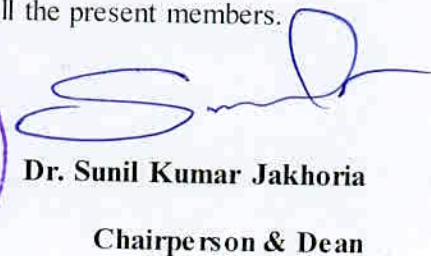 ll the present members.
Dr. Sunil Kumar Jakhoria
Chairperson & Dean